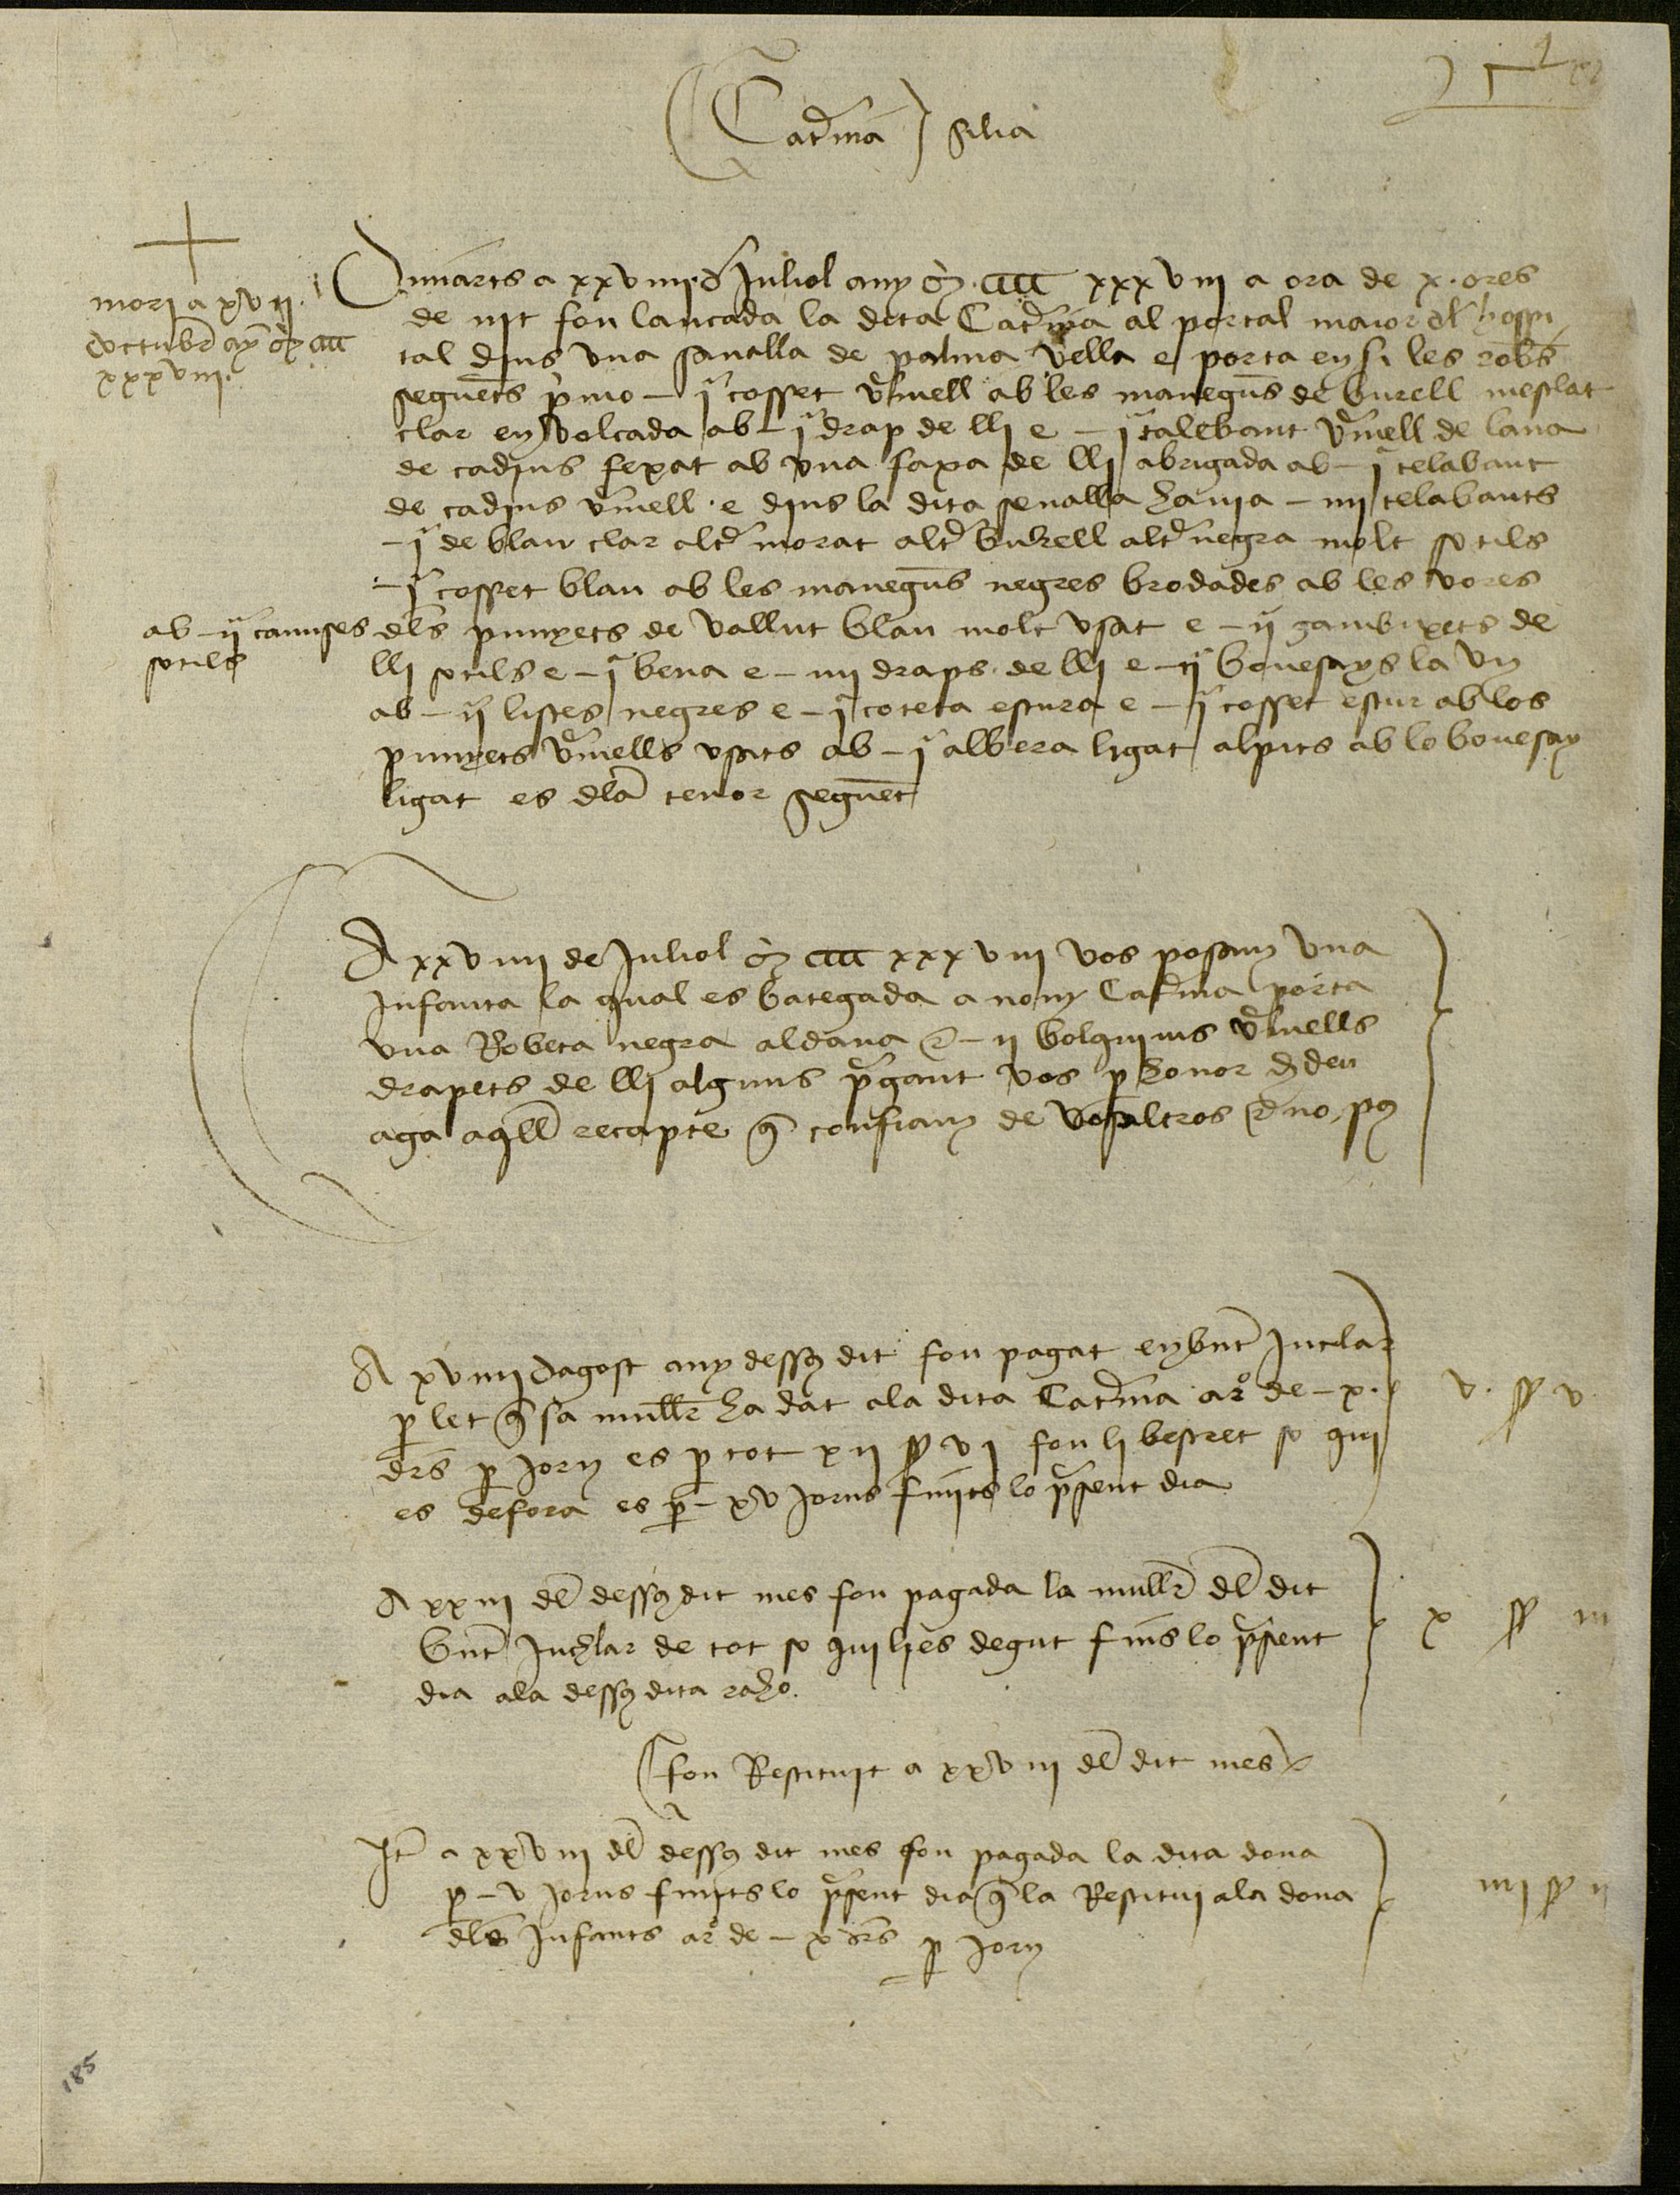 Cat̃ina filia
mori a xvii
doctubr̃ any M cccc
xxxviii
Dimarts a xxviiii de Juliol any M cccc xxxviii a ora de x ores
de nit fon lancada la dita Cat̃ina al portal maior dl̃ hospi
tal dins vna sanalla de palma vella e porta en si les robes
seguẽts p̃mo – j cosset vermell ab les manegues de burell mesclat
clar envolcada ab – j drap de lli e – j talebant vermell de lana
de cadins fexat ab vna faxa de lli abrigada ab – j telabant
de cadins vermell e dins la dita senalla hauia – iiij telabants
– j de blau clar altre morat altre burell altre negra molt sotils
– j cosset blau ab les manegues negres brodades ab les vores
ab – ij camises
sotils
dels punyets de vallut blau molt vsat e – ij gambuxets de
lli sotils e – j bena e – iiij draps de lli e – ij bonesays la vn
ab – ij listes negres e – j coteta escura e – j cosset escur ab los
punyets vermells vsats ab – j albera ligat al pits ab lo bonesay
ligat es dela tenor seguẽt
A xxviiii de Juliol M cccc xxxviii vos posam vna
Infanta la qual es bategada a nom Cat̃ina porta
vna Robeta negra aldana e – ij bolquins vermells
drapets de lli alguns p̃gant vos p honor de deu
aga aq̃ll recapte q̃ confiam de vosaltros e no pus
A xviiii dagost any dessus dit fon pagat en bñt Juclar
p let q̃ sa mullr̃ ha dat a la dita Cat̃ina a rº de – x
drs p jorn es p tot xii ss vi fon li bestret so qui
es defora es p – xv jorns finits lo p̃sent dia
v ss v
A xxiii dl̃ dessus dit mes fon pagada la mullr̃ dl̃ dit
bñt Juclar de tot so qui li es degut fins lo p̃sent
dia a la dessus dita raho
x ss iii
fon Restituit a xxviii dl̃ dit mes
Itẽ a xxviii dl̃ dessus dit mes fon pagada la dita dona
p – v jorns finits lo p̃sent dia q̃ la Restitui a la dona
dels Infants a rº de – x drs p jorn
iiii ss ii
185